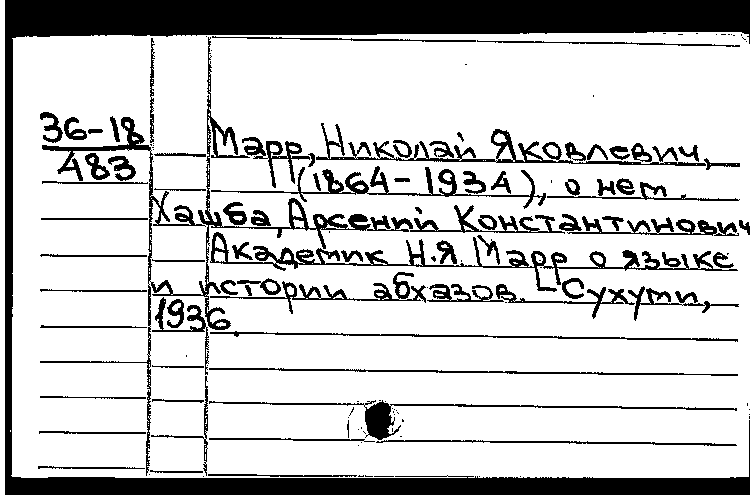 36-18
483
Марр, Николай Яковлевич,
(1864-1934), о нем.
Хашба, Арсений Константинович
Академик Н.Я. Марр о языке
и истории абхазов. - Сухуми,
1936.